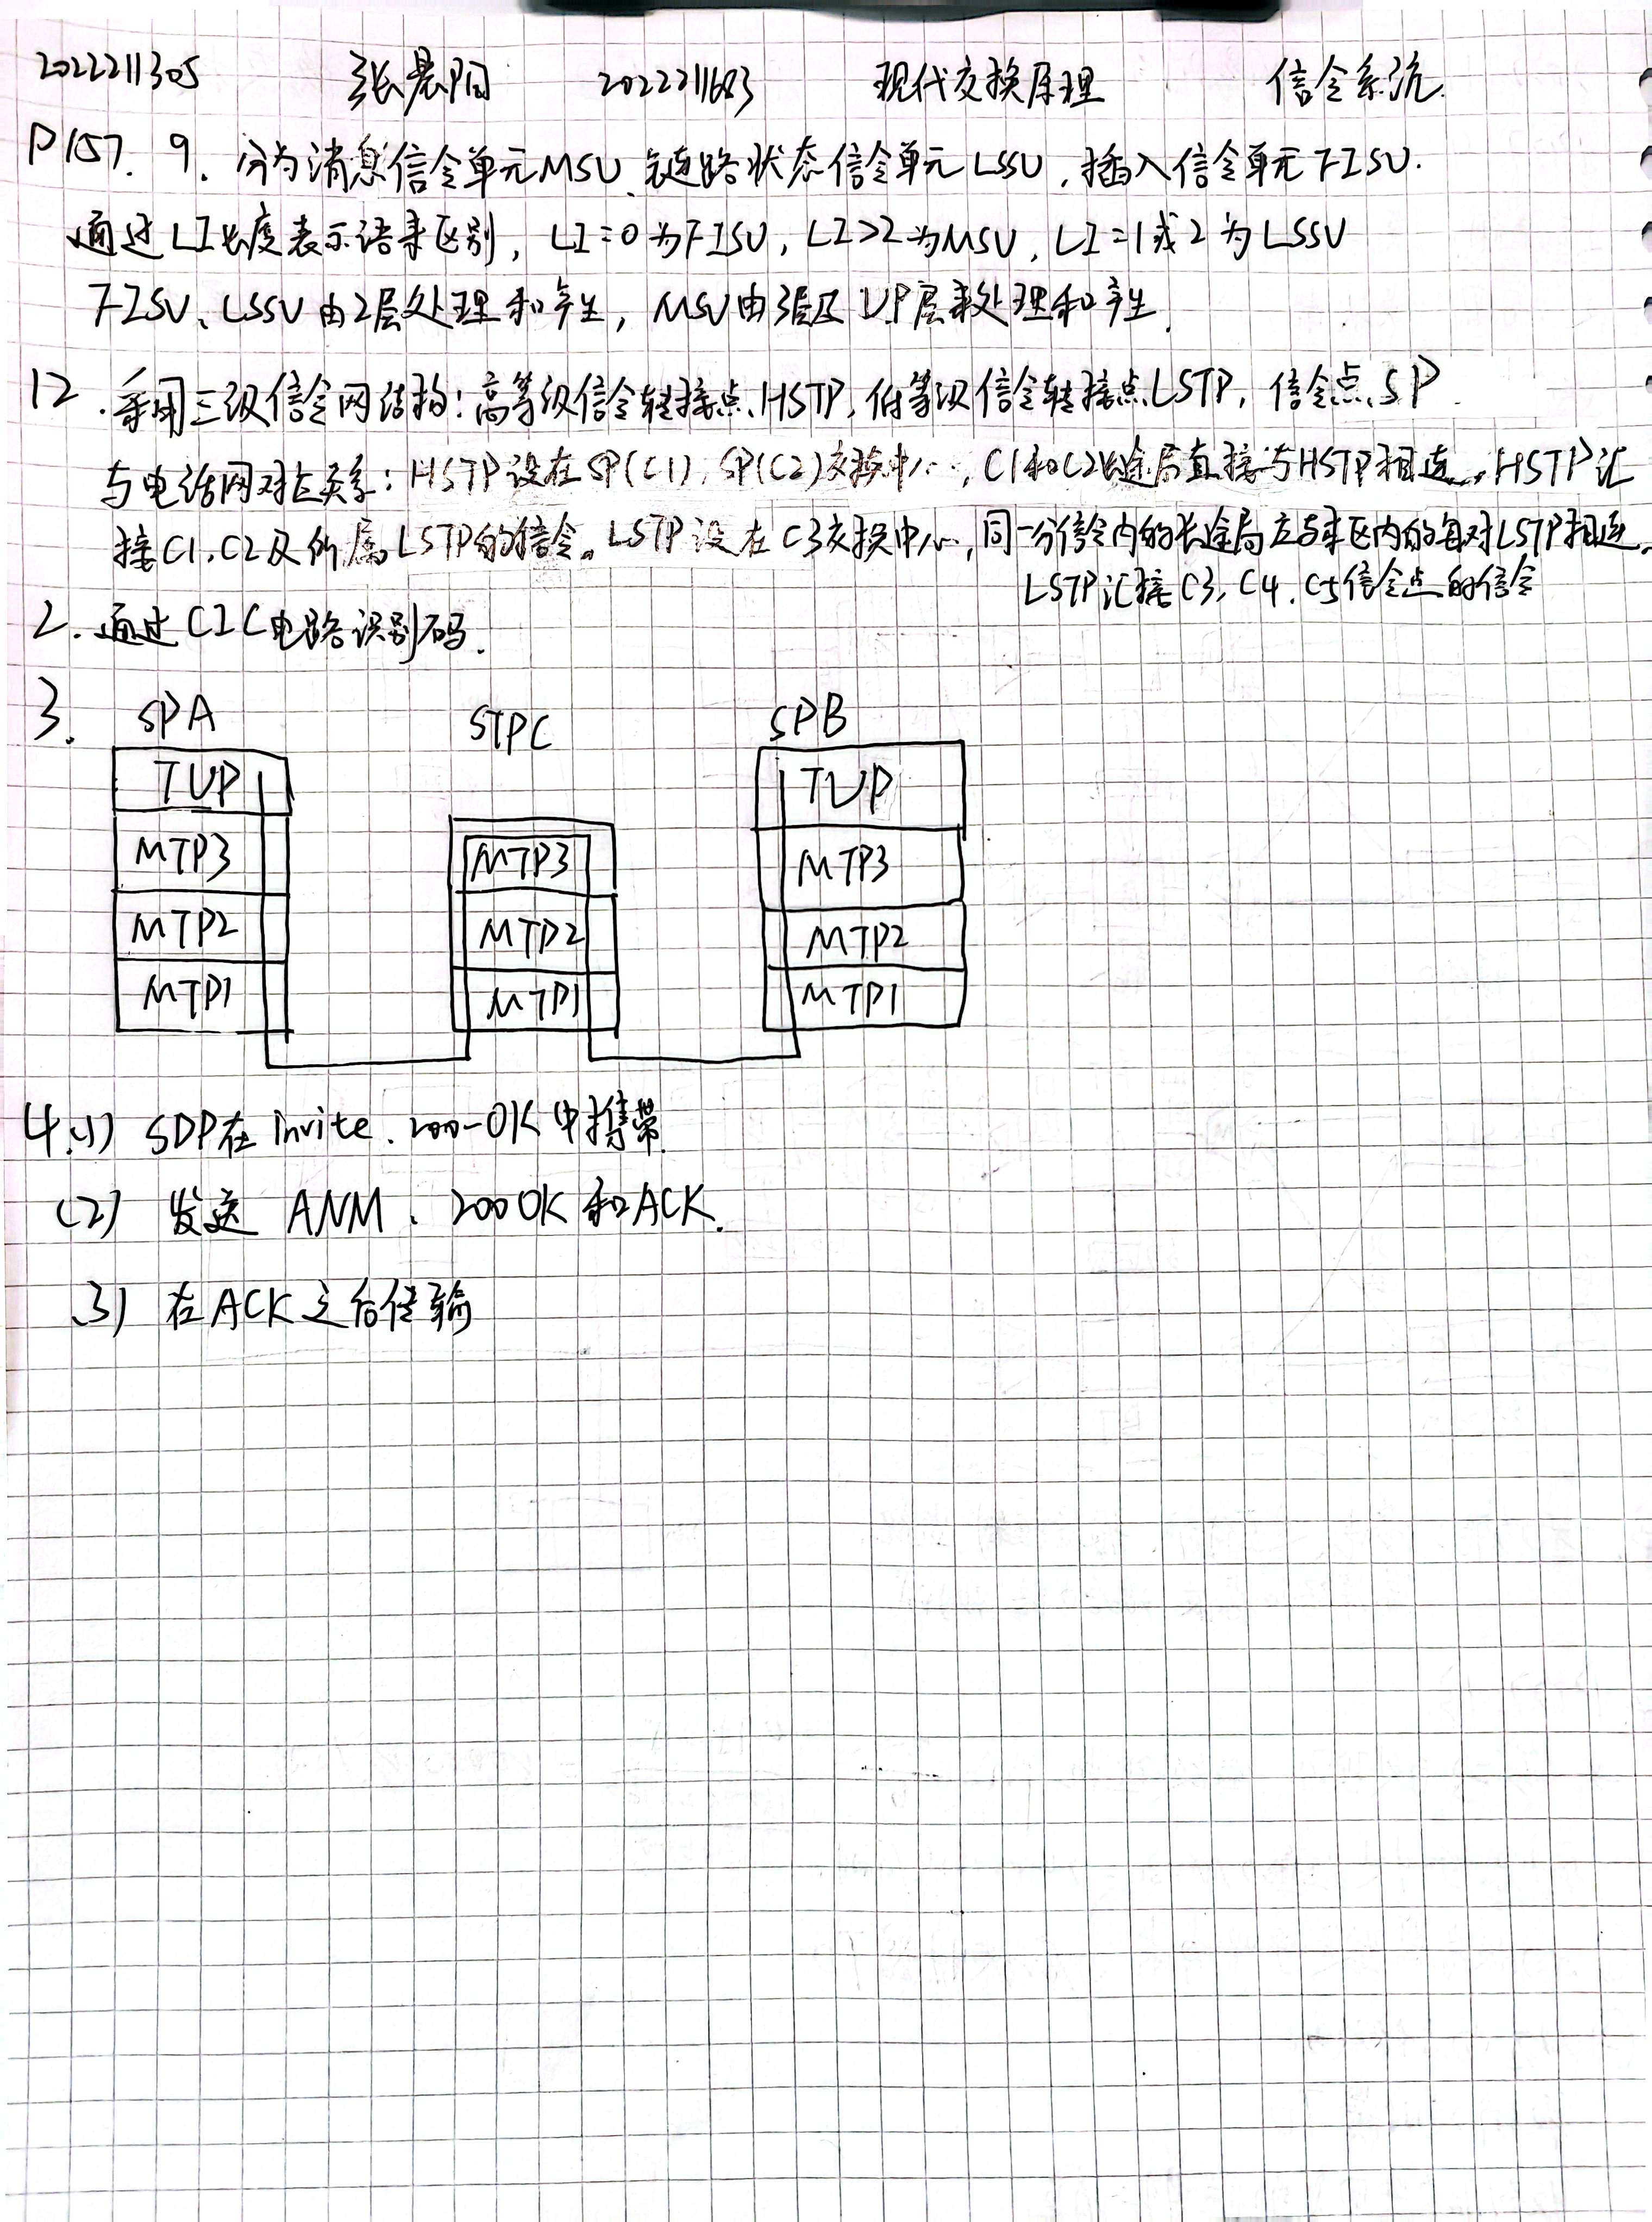 2022211305 张晨阳 2022211683 现代交换原理 信令系统.
P157. 9. 分为消息信令单元MSU、链路状态信令单元LSSU,插入信令单元FISU.
通过LI长度表示语来区别, LI=0为FISU, LI>2为MSU, LI=1或2为LSSU
FISU、LSSU由2层处理和产生, MSU由3层及UP层来处理和产生.
12.采用三级信令网结构:高等级信令转接点HSTP,低等级信令转接点LSTP,信令点SP.
与电话网对应关系:HSTP设在SP(C1),SP(C2)交换中心,C1和C2长途局直接与HSTP相连,HSTP汇
接C1.C2及所属LSTP的信令。LSTP设在C3交换中心,同一分信令内的长途局应与本区内的每对LSTP相连。
LSTP汇接C3,C4.C5信令点的信令
2.通过CIC电路识别码.
3. SPA STPC SPB
TUP TUP
MTP3 MTP3 MTP3
MTP2 MTP2 MTP2
MTP1 MTP1 MTP1
4.(1) SDP在invite.200-OK中携带.
(2) 发送 ANM、200OK和ACK.
(3) 在ACK之后传输